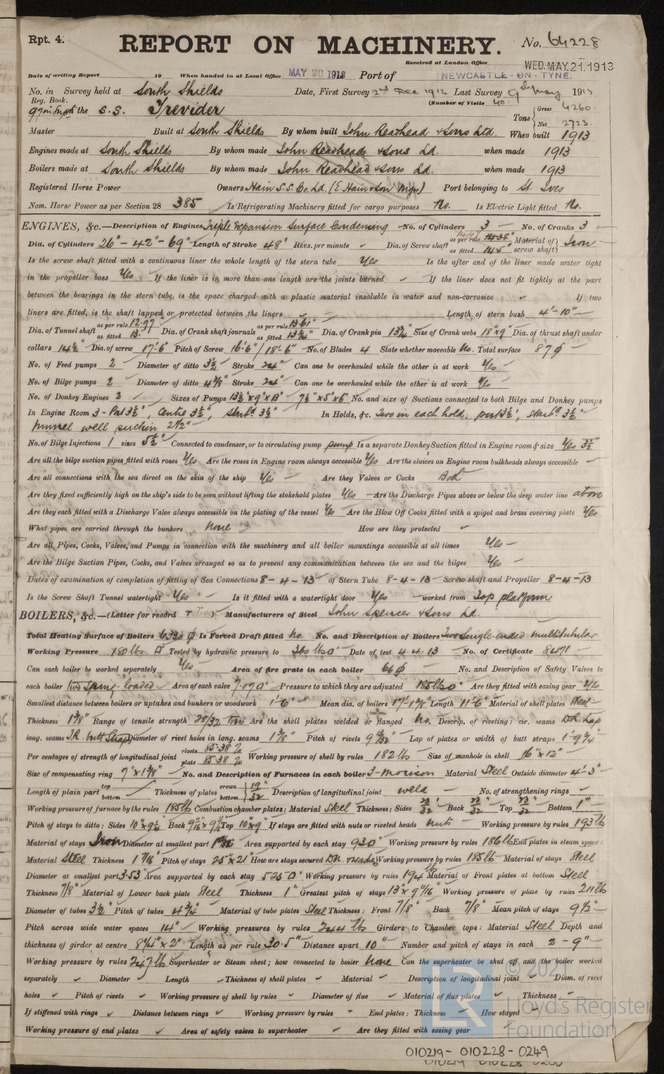 Rpt. 4.
REPORT ON MACHINERY.
No. 64228
Received at London Office WED. MAY. 21. 1913
Date of writing Report 19 When handed in at Local Office MAY 20 1913 Port of NEWCASTLE-ON-TYNE.
No. in Survey held at South Shields Date, First Survey 2nd Dec 1912 Last Survey 9th May 1913
Reg. Book. (Number of Visits 40)
on the S.S. Trevider Tons Gross 4260 Net 2723
Master Built at South Shields By whom built John Readhead & Sons Ltd. When built 1913
Engines made at South Shields By whom made John Readhead & Sons Ld. when made 1913
Boilers made at South Shields By whom made John Readhead & Sons Ld. when made 1913
Registered Horse Power Owners Hain S.S. Co. Ld. (E Hain & Son Mgrs) Port belonging to St. Ives
Nom. Horse Power as per Section 28 385 Is Refrigerating Machinery fitted for cargo purposes No. Is Electric Light fitted No.
ENGINES, &c.—Description of Engines Triple Expansion Surface Condensing No. of Cylinders 3 No. of Cranks 3
Dia. of Cylinders 26" - 42" - 69" Length of Stroke 48" Revs. per minute Dia. of Screw shaft as per rule 14.38" as fitted 14.5" Material of screw shaft Iron
Is the screw shaft fitted with a continuous liner the whole length of the stern tube Yes Is the after end of the liner made water tight
in the propeller boss Yes If the liner is in more than one length are the joints burned If the liner does not fit tightly at the part
between the bearings in the stern tube, is the space charged with a plastic material insoluble in water and non-corrosive If two
liners are fitted, is the shaft lapped or protected between the liners Length of stern bush 4'-10"
Dia. of Tunnel shaft as per rule 12.97 as fitted Dia. of Crank shaft journals as per rule 13.61" as fitted 13¾" Dia. of Crank pin 13¾" Size of Crank webs 18"x9" Dia. of thrust shaft under
collars 14½" Dia. of screw 17'6" Pitch of Screw 16'6"/18'6" No. of Blades 4 State whether moveable No. Total surface 87
No. of Feed pumps 2 Diameter of ditto Stroke 24" Can one be overhauled while the other is at work Yes
No. of Bilge pumps 2 Diameter of ditto Stroke 24" Can one be overhauled while the other is at work Yes
No. of Donkey Engines Sizes of Pumps No. and size of Suctions connected to both Bilge and Donkey pumps
In Engine Room 3 - Port 3½", Centre 3½", Starbd 3½" In Holds, &c. Two in each hold, port 3½", starbd 3½"
tunnel well suction 2½"
No. of Bilge Injections 1 sizes 5½" Connected to condenser, or to circulating pump pump Is a separate Donkey Suction fitted in Engine room & size Yes 3½"
Are all the bilge suction pipes fitted with roses Yes Are the roses in Engine room always accessible Yes Are the sluices on Engine room bulkheads always accessible
Are all connections with the sea direct on the skin of the ship Yes Are they Valves or Cocks Both
Are they fixed sufficiently high on the ship's side to be seen without lifting the stokehold plates Yes Are the Discharge Pipes above or below the deep water line above
Are they each fitted with a Discharge Valve always accessible on the plating of the vessel Yes Are the Blow Off Cocks fitted with a spigot and brass covering plate Yes
What pipes are carried through the bunkers None How are they protected
Are all Pipes, Cocks, Valves, and Pumps in connection with the machinery and all boiler mountings accessible at all times Yes
Are the Bilge Suction Pipes, Cocks, and Valves arranged so as to prevent any communication between the sea and the bilges Yes
Dates of examination of completion of fitting of Sea Connections 8-4-13 of Stern Tube 8-4-13 Screw shaft and Propeller 8-4-13
Is the Screw Shaft Tunnel watertight Yes Is it fitted with a watertight door Yes worked from Top platform
BOILERS, &c.—(Letter for record ) Manufacturers of Steel John Spencer & Sons Ld.
Total Heating Surface of Boilers Is Forced Draft fitted No. No. and Description of Boilers Two Single ended multitubular
Working Pressure 180 lbs Tested by hydraulic pressure to 360 lbs Date of test 4.4.13 No. of Certificate 8471
Can each boiler be worked separately Yes Area of fire grate in each boiler 66 No. and Description of Safety Valves to
each boiler two Spring-loaded Area of each valve Pressure to which they are adjusted 185 lbs Are they fitted with easing gear Yes
Smallest distance between boilers or uptakes and bunkers or woodwork 1'-6" Mean dia. of boilers Length 11'-6" Material of shell plates Steel
Thickness Range of tensile strength 28/32 Tons Are the shell plates welded or flanged No. Descrip. of riveting: cir. seams DR. Lap
long. seams TR. butt straps Diameter of rivet holes in long. seams Pitch of rivets Lap of plates or width of butt straps
Per centages of strength of longitudinal joint rivets 85.38 % plate 85.38 % Working pressure of shell by rules 182 lb Size of manhole in shell 16"x12"
Size of compensating ring No. and Description of Furnaces in each boiler 3-Morison Material Steel Outside diameter 4'-3"
Length of plain part top bottom Thickness of plates crown bottom Description of longitudinal joint weld No. of strengthening rings
Working pressure of furnace by the rules 185 lb Combustion chamber plates: Material Steel Thickness: Sides Back Top Bottom 1"
Pitch of stays to ditto: Sides Back Top 10"x9" If stays are fitted with nuts or riveted heads nuts Working pressure by rules 193 lb
Material of stays Iron Diameter at smallest part Area supported by each stay Working pressure by rules 186 lb End plates in steam space:
Material Steel Thickness Pitch of stays 25"x21" How are stays secured Working pressure by rules 185 lb Material of stays Steel
Diameter at smallest part Area supported by each stay Working pressure by rules Material of Front plates at bottom Steel
Thickness 7/8" Material of Lower back plate Steel Thickness 1" Greatest pitch of stays Working pressure of plate by rules
Diameter of tubes 3½" Pitch of tubes Material of tube plates Steel Thickness: Front 7/8" Back 7/8" Mean pitch of stays 9½"
Pitch across wide water spaces 14" Working pressures by rules Girders to Chamber tops: Material Steel Depth and
thickness of girder at centre Length as per rule 30.5" Distance apart 10" Number and pitch of stays in each 2-9"
Working pressure by rules Superheater or Steam chest; how connected to boiler None Can the superheater be shut off and the boiler worked
separately Diameter Length Thickness of shell plates Material Description of longitudinal joint Diam. of rivet
holes Pitch of rivets Working pressure of shell by rules Diameter of flue Material of flue plates Thickness
If stiffened with rings Distance between rings Working pressure by rules End plates: Thickness How stayed
Working pressure of end plates Area of safety valves to superheater Are they fitted with easing gear
Lloyd's Register
Foundation
010219-010228-0249